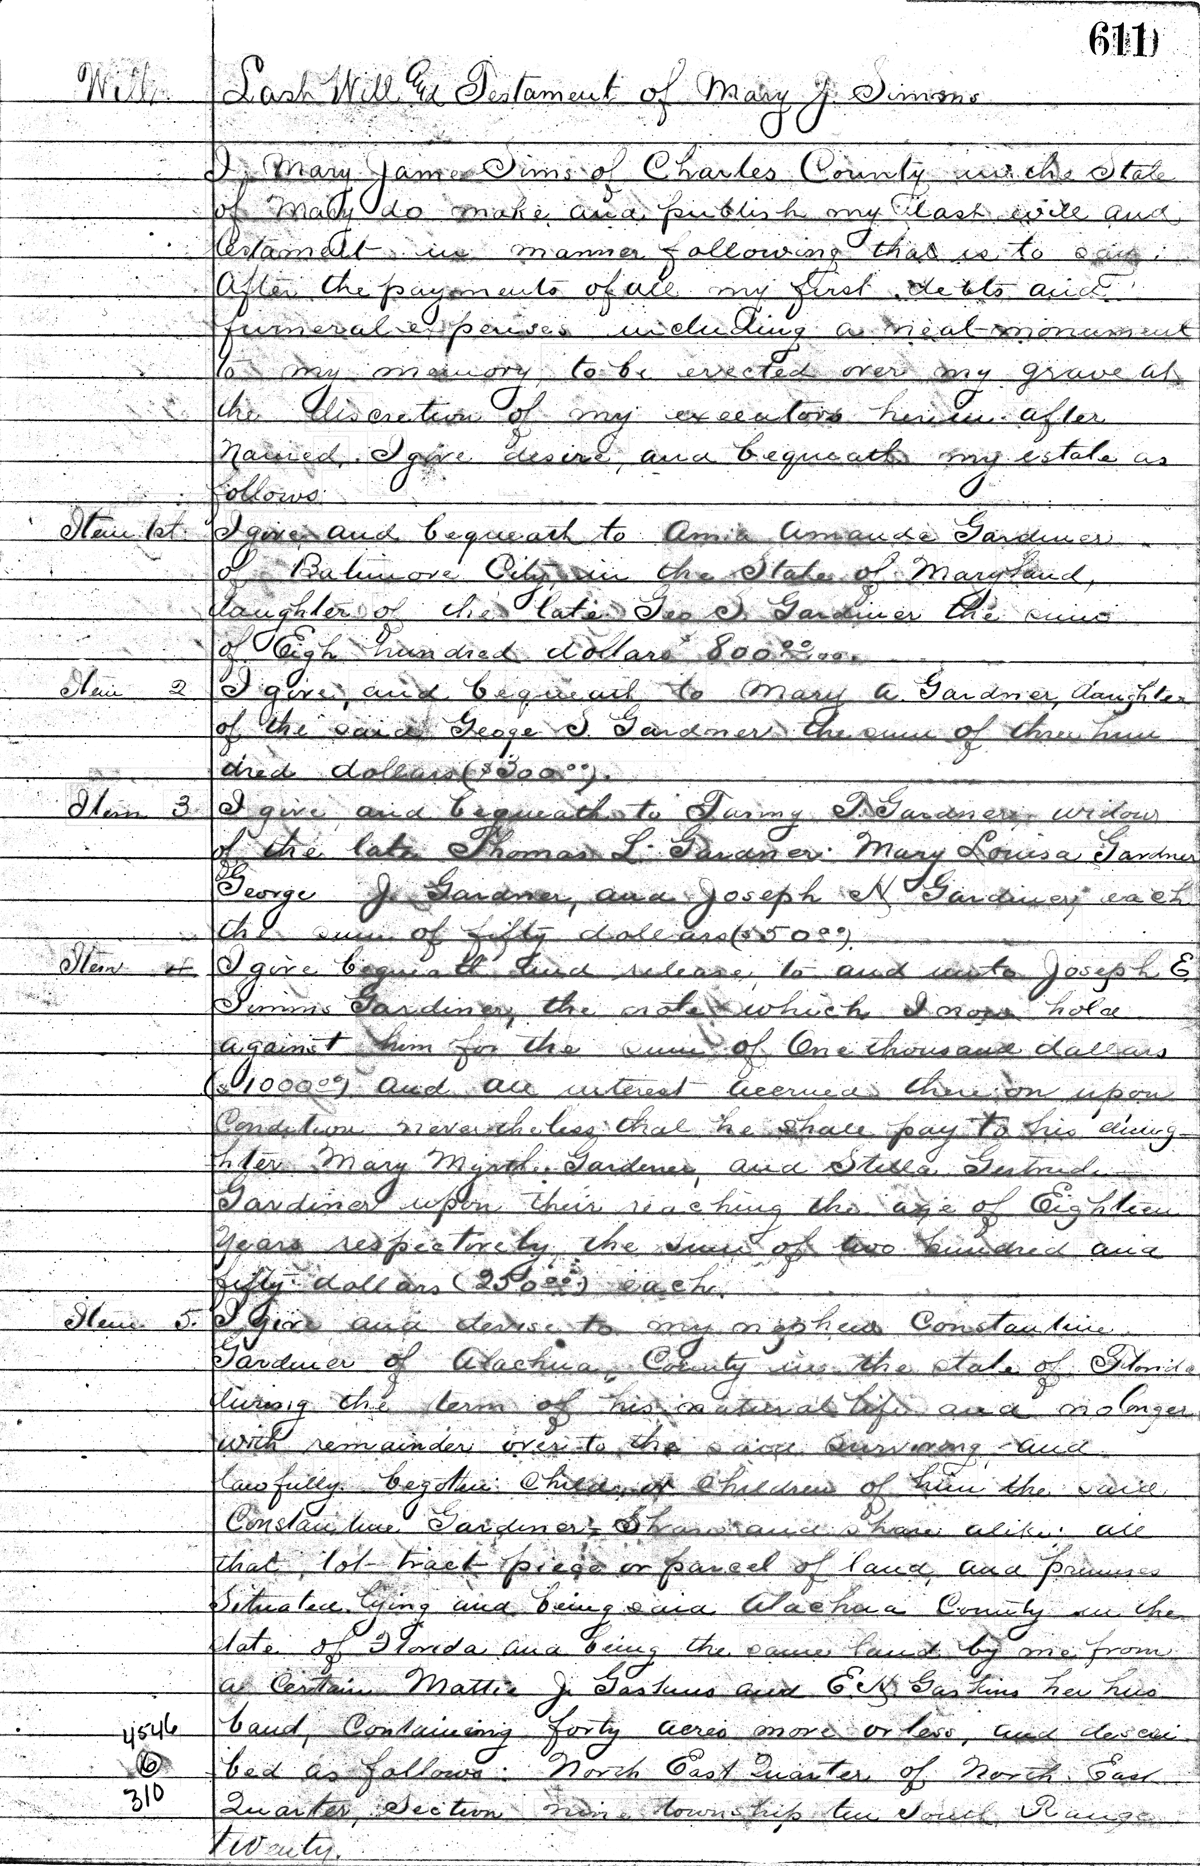 611
Will. Last Will And Testament of Mary J. Simms
I, Mary Jane Sims of Charles County in the State
of Mary do make and publish my last will and
testament in manner following that is to say:
After the payments of all my first debts and
funeral expenses including a neat monument
to my memory to be erected over my grave at
the discretion of my executors herein after
Named, I give desire, and bequeath my estate as
follows
Item 1st. I give and bequeath to Amanda Gardiner
of Batimore City, in the State of Maryland,
daughter of the late Geo S. Gardiner the sum
of Eigh hundred dollars $800.00
Item 2 I give, and bequeath to Mary A. Gardner, daughter
of the said Geoge S. Gardner the sum of three hun
dred dollars ($300.00).
Item 3 I give and bequeath to T. Gardner, widow
of the late Thomas L. Gardner. Mary Louisa Gardner
George J. Gardner, and Joseph N Gardiner, each
the sum of fifty dollars ($50.00)
Item 4 I give bequeath and release, to and unto Joseph E.
Simms Gardiner, the note which I now hold
against him for the sum of One thousand dollars
($1000.00) and all interest accrued there on upon
Condition nevertheless that he shall pay to his daug-
hter Mary Myrth. Gardener, and Stella Gertrude
Gardiner upon their reaching the age of Eighteen
Years respectively the sum of two hundred and
fifty dollars (250.00) each.
Item 5. I give and devise to my nephew Constantine
Gardiner of Alachua, County in the state of Florida
during the term of his natural life and no longer
with remainder over to the said surviving and
lawfully begotten child or children of him the said
Constantine Gardiner, Share and share alike: all
that, lot tract piece or parcel of land, and premises
Situated lying and being said Alachua County in the
state of Florida and being the same land by me from
a certain Mattie J. Gaskins and E.N. Gaskins her hus
band, Containing forty acres more or less, and descri
bed as follows: North East Quarter of North East
Quarter, Section nine township ten South Range
twenty.
4546
6
310